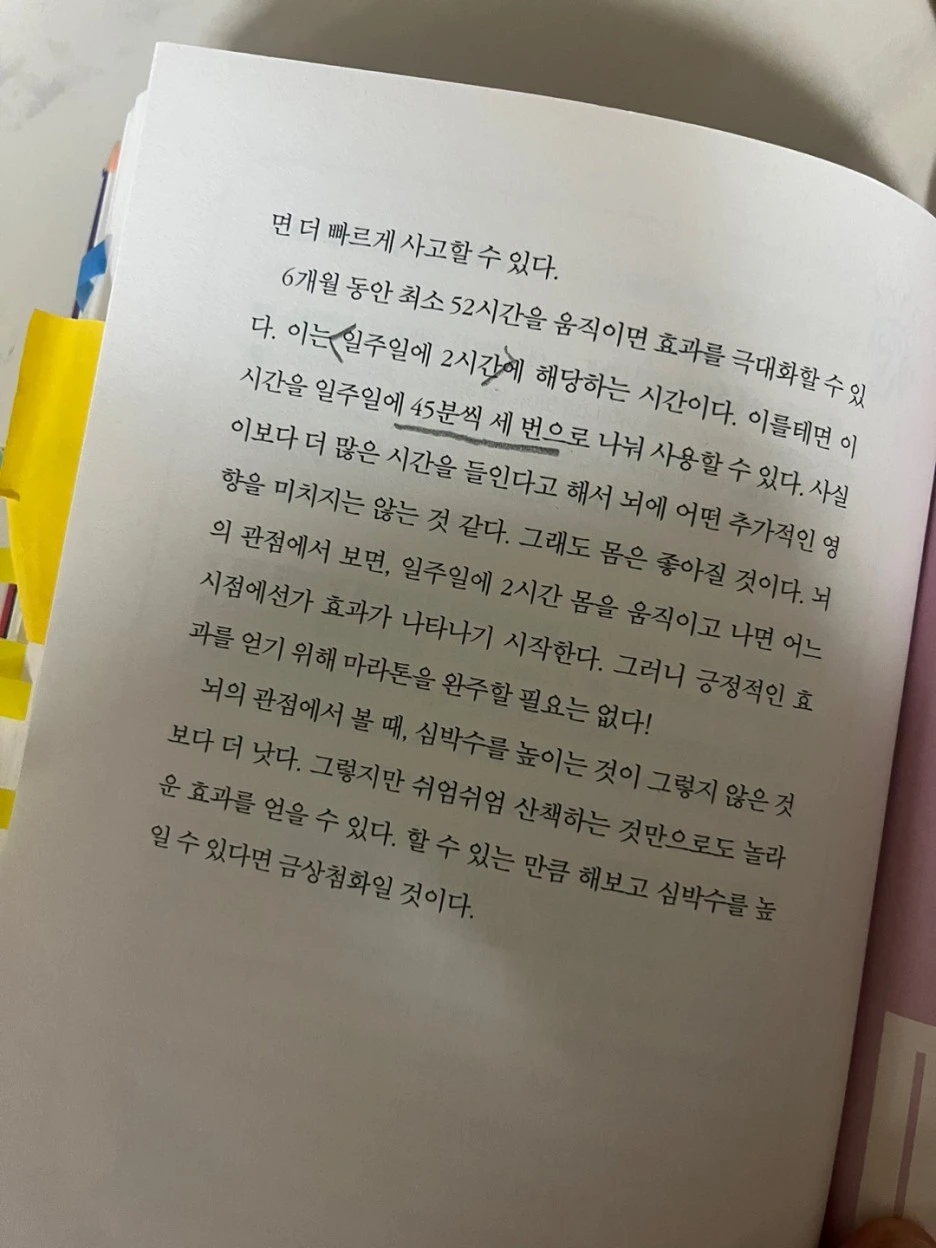 면 더 빠르게 사고할 수 있다.
6개월 동안 최소 52시간을 움직이면 효과를 극대화할 수 있
다. 이는 일주일에 2시간에 해당하는 시간이다. 이를테면 이
시간을 일주일에 45분씩 세 번으로 나눠 사용할 수 있다. 사실
이보다 더 많은 시간을 들인다고 해서 뇌에 어떤 추가적인 영
향을 미치지는 않는 것 같다. 그래도 몸은 좋아질 것이다. 뇌
의 관점에서 보면, 일주일에 2시간 몸을 움직이고 나면 어느
시점에선가 효과가 나타나기 시작한다. 그러니 긍정적인 효
과를 얻기 위해 마라톤을 완주할 필요는 없다!
뇌의 관점에서 볼 때, 심박수를 높이는 것이 그렇지 않은 것
보다 더 낫다. 그렇지만 쉬엄쉬엄 산책하는 것만으로도 놀라
운 효과를 얻을 수 있다. 할 수 있는 만큼 해보고 심박수를 높
일 수 있다면 금상첨화일 것이다.